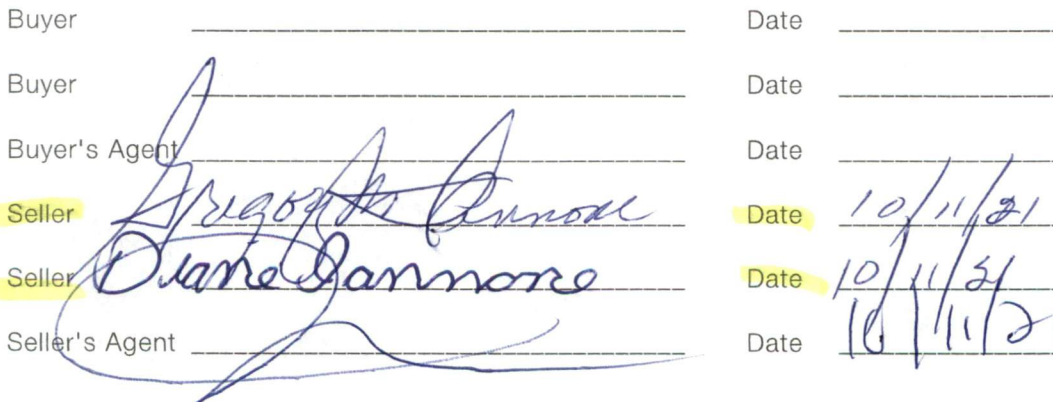 Buyer Date
Buyer Date
Buyer's Agent Date
Seller Gregory M Iannone Date 10/11/21
Seller Diane Iannone Date 10/11/21
Seller's Agent Date 10/11/2